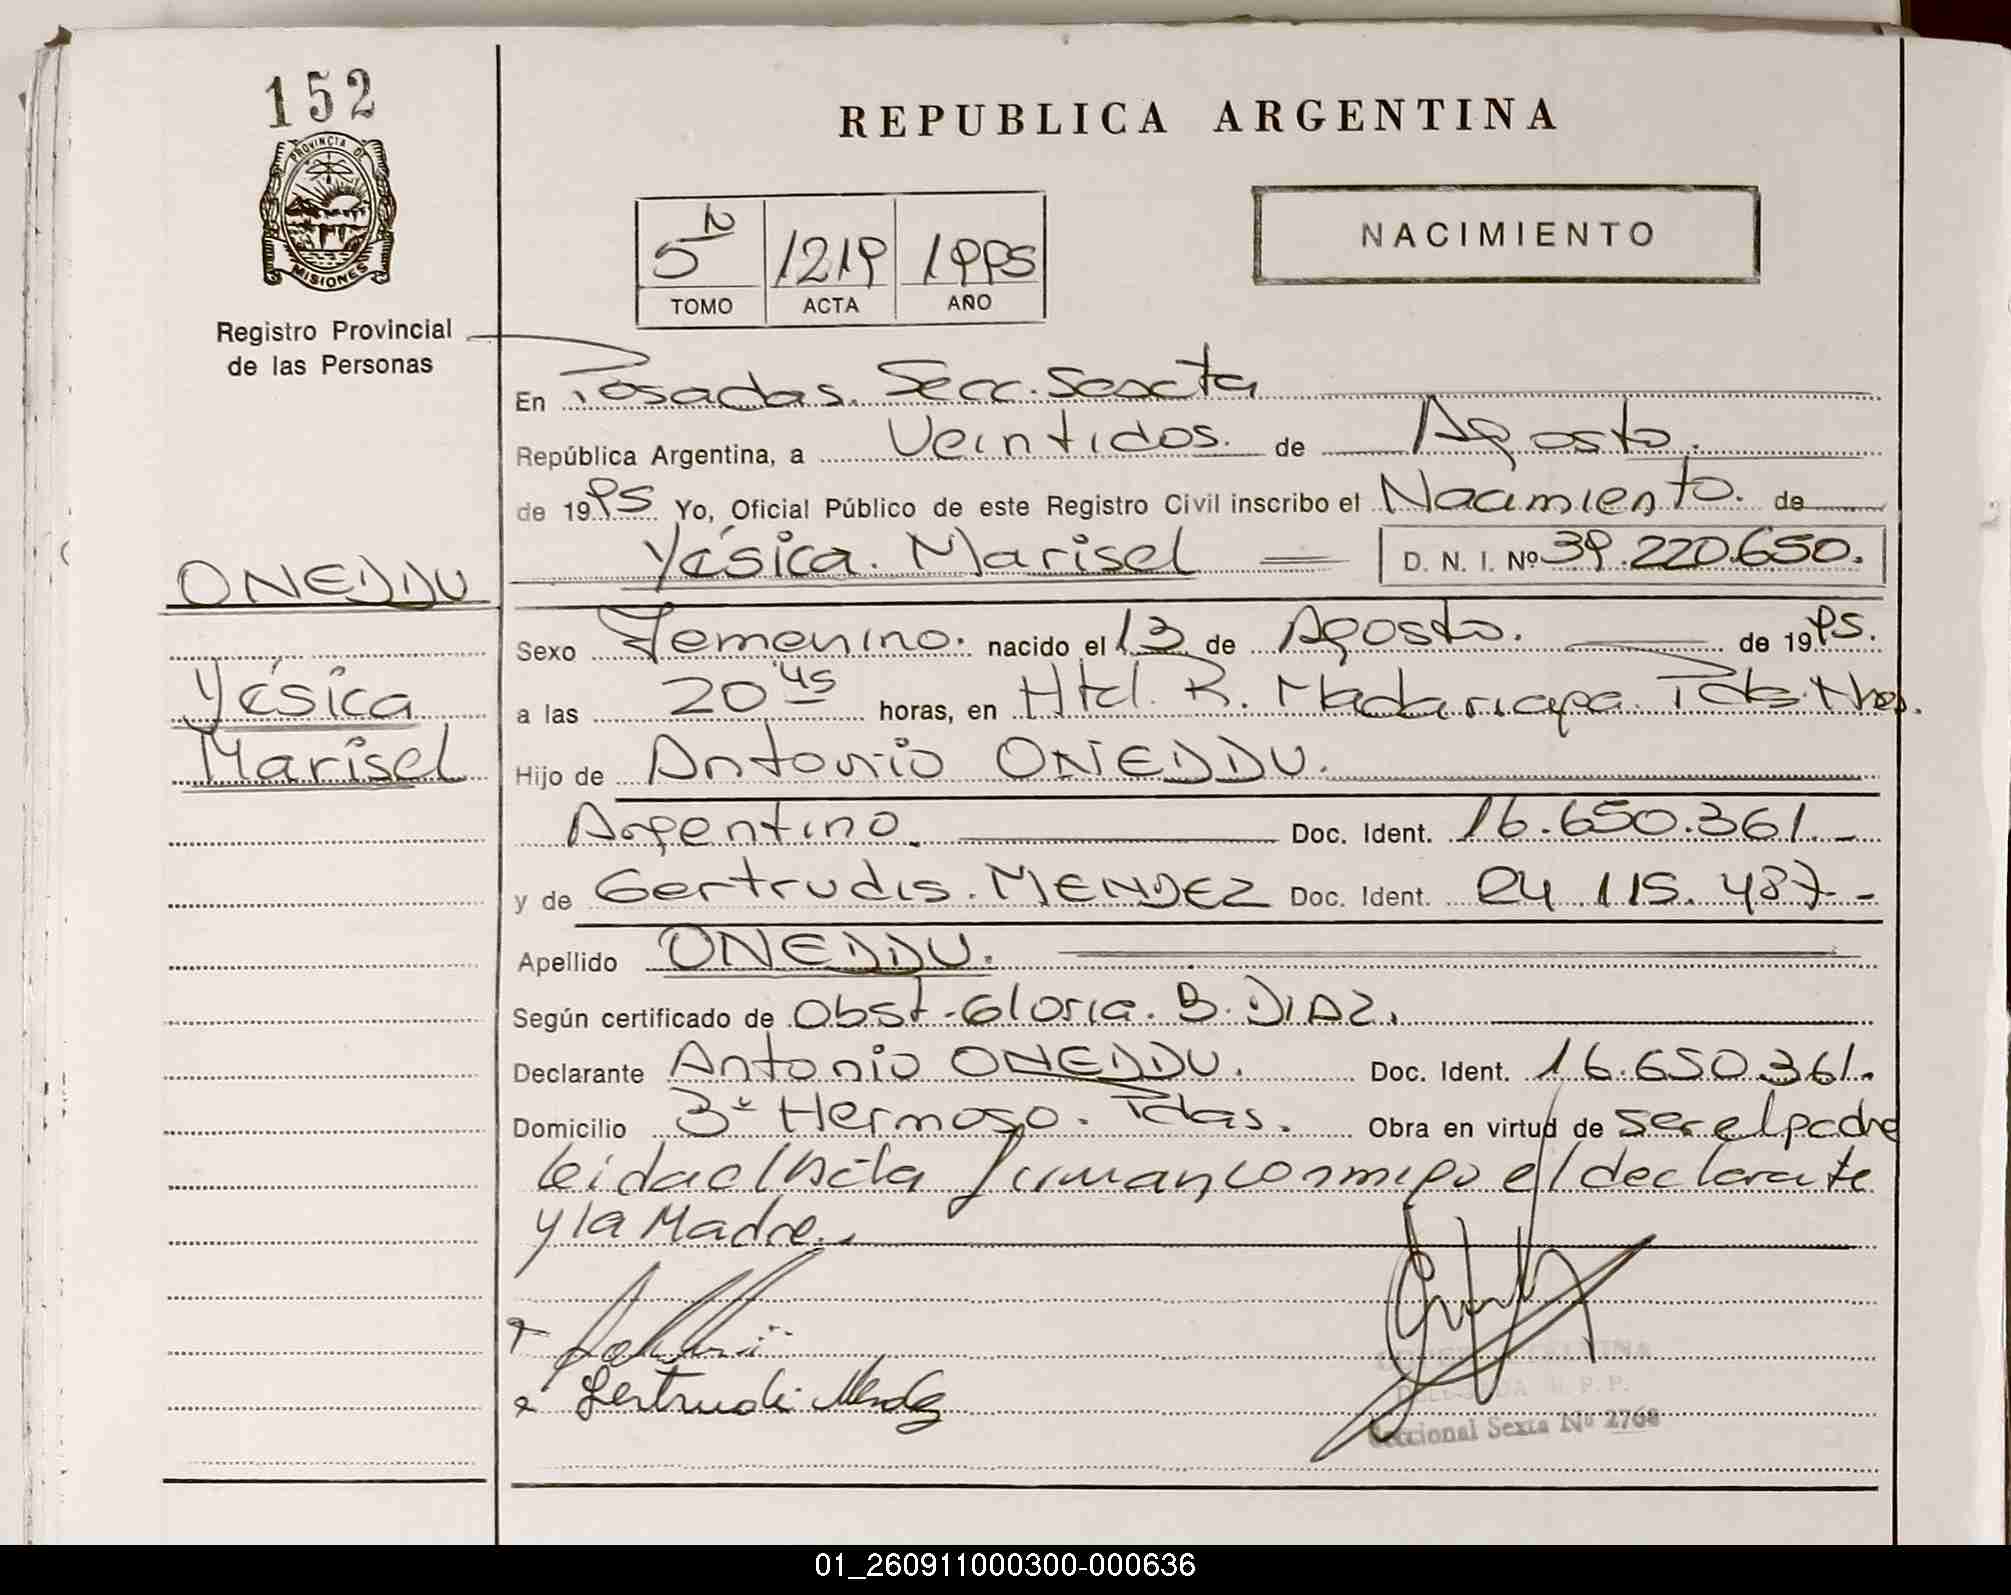 152
PROVINCIA DE
MISIONES
Registro Provincial
de las Personas
ONEDDU
Yésica
Marisel
REPUBLICA ARGENTINA
NACIMIENTO
5 N 1219 1995
TOMO ACTA AÑO
En Posadas. Secc. Sexta
República Argentina, a Veintidos. de Agosto.
de 1995 Yo, Oficial Público de este Registro Civil inscribo el Nacimiento. de
Yésica. Marisel D. N. I. Nº 39.220.650.
Sexo Femenino. nacido el 13 de Agosto. de 1995.
a las 20 45 horas, en Htal. R. Madariaga. Pdas. Mnes.
Hijo de Antonio ONEDDU.
Argentino. Doc. Ident. 16.650.361.-
y de Gertrudis. MENDEZ Doc. Ident. 24.115.487-
Apellido ONEDDU.
Según certificado de Obst. Gloria. B. DIAZ.
Declarante Antonio ONEDDU. Doc. Ident. 16.650.361.
Domicilio Bº Hermoso. Pdas. Obra en virtud de ser el padre
leida el Acta firman conmigo el declarante
y la Madre.
Gertrudi Mendez
R.P.P.
Seccional Sexta Nº 2768
01_260911000300-000636